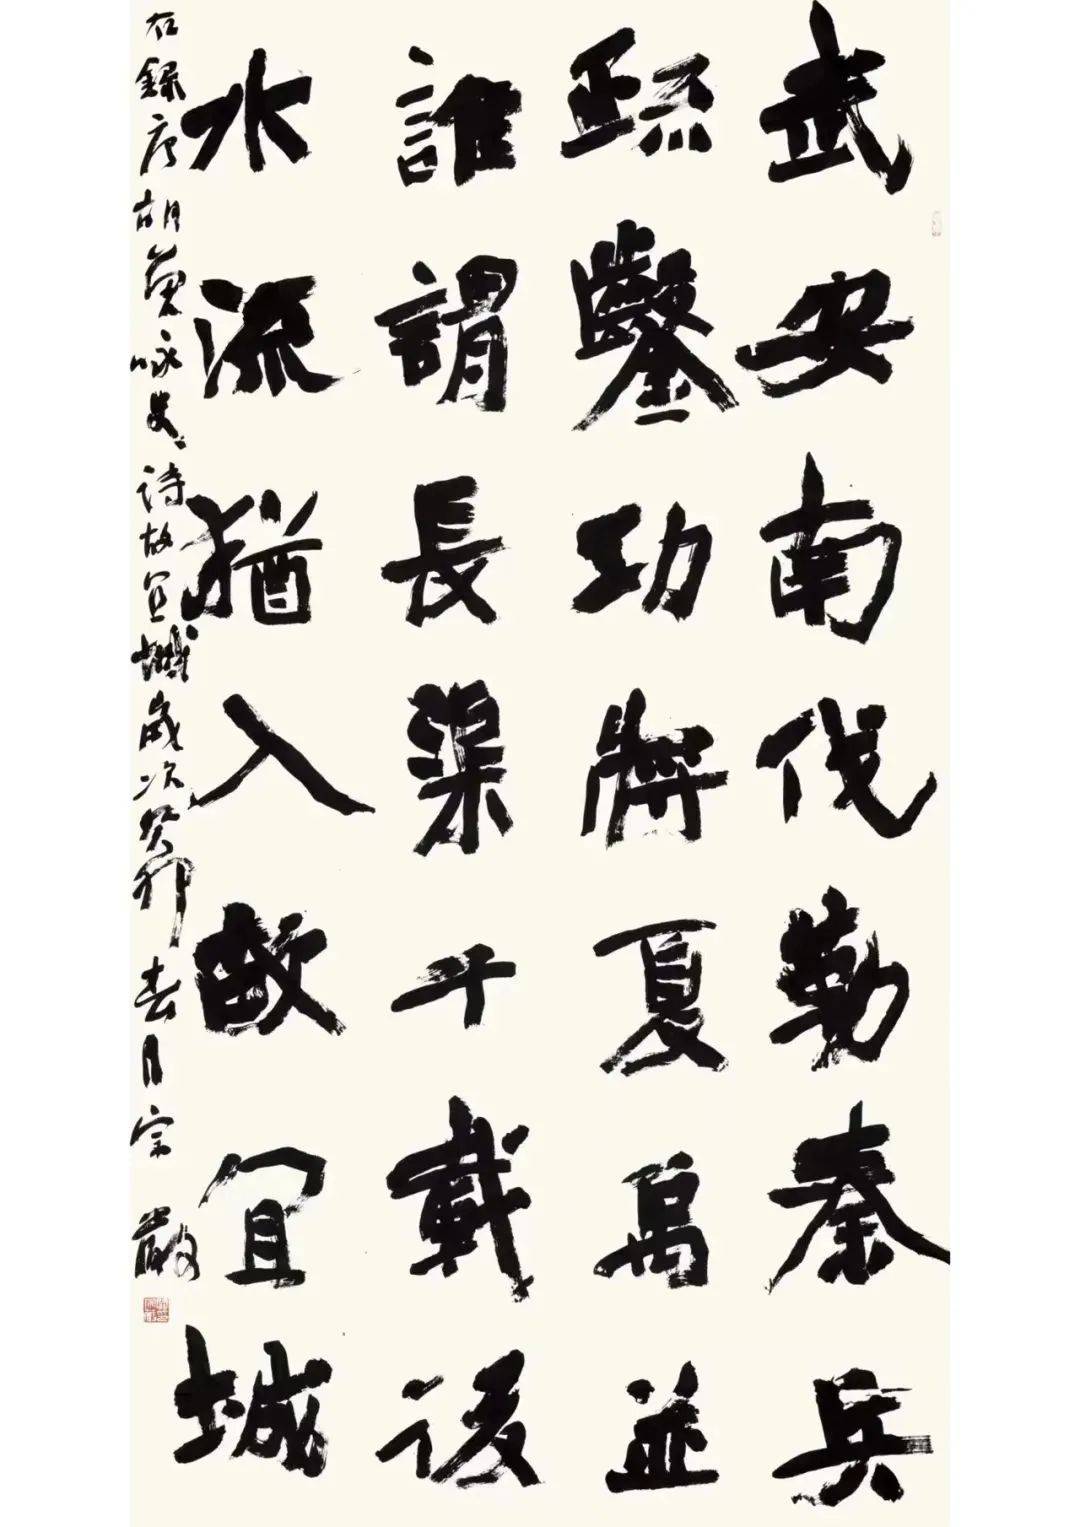 武安南伐勒秦兵
疏鑿功將夏禹並
誰謂長渠千載後
水流猶入故宜城
右錄唐胡曾咏史詩故宜城歲次癸卯春月宗